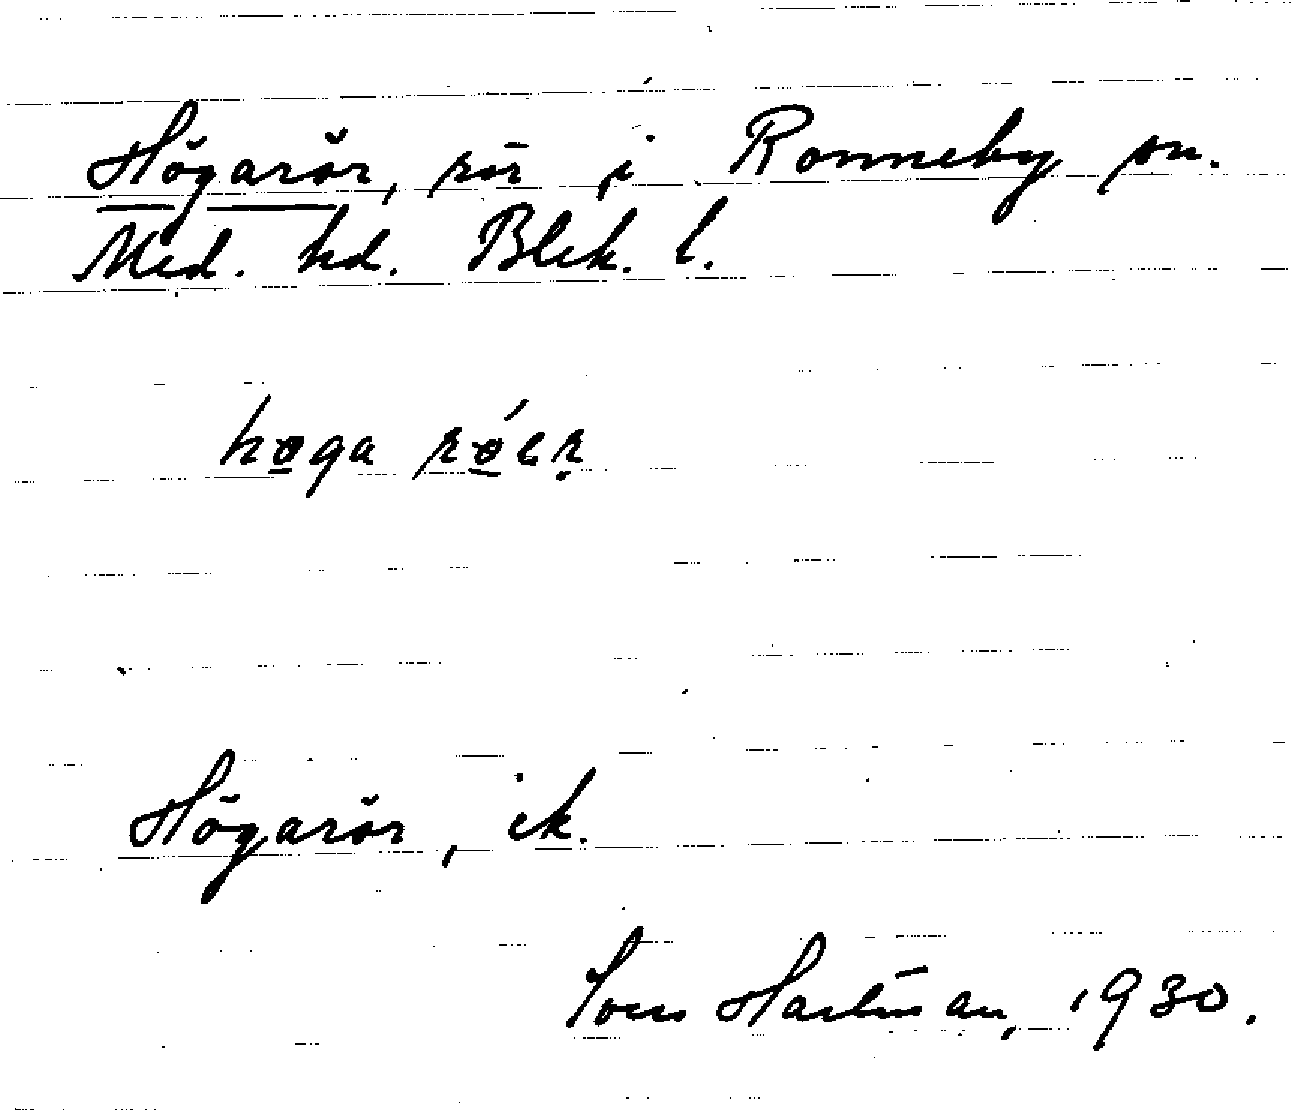 Högarör, rör i Ronneby sn.
Med. hd. Blek. l.
høga
Högarör, ek.
Hartman, 1930.